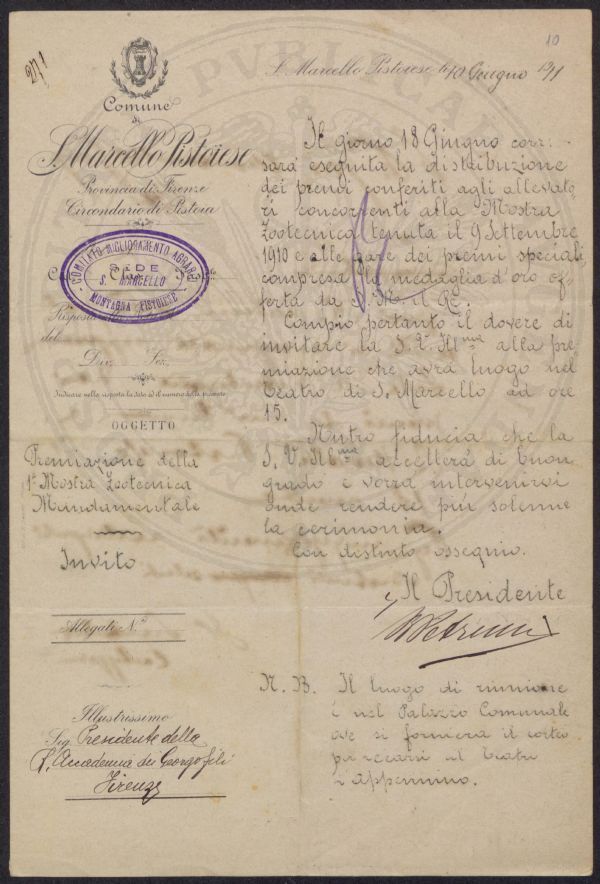 271
10
Comune
di
S. Marcello Pistoiese
Provincia di Firenze
Circondario di Pistoia
COMITATO MIGLIORAMENTO AGRARIO
SEDE
S. MARCELLO
MONTAGNA PISTOIESE
Risposta
del
Div. Sez.
Indicare nella risposta la data ed il numero della presente
OGGETTO
Premiazione della
1ª Mostra Zootecnica
Mandamentale
Invito
Allegati N.º
Illustrissimo
Sig. Presidente della
R. Accademia dei Georgofili
Firenze
S. Marcello Pistoiese li 10 Giugno 1911
Il giorno 18 Giugno corr:
sarà eseguita la distribuzione
dei premi conferiti agli allevato-
ri concorrenti alla Mostra
Zootecnica tenuta il 9 Settembre
1910 e alle gare dei premi speciali
compresa la medaglia d'oro of-
ferta da S. M. il Re.
Compio pertanto il dovere di
invitare la S. V. Ill.ma alla pre-
miazione che avrà luogo nel
teatro di S. Marcello ad ore
15.
Nutro fiducia che la
S. V. Ill.ma accetterà di buon
grado e vorrà intervenirvi
onde rendere più solenne
la cerimonia.
Con distinto ossequio.
Il Presidente
N. B. Il luogo di riunione
è nel Palazzo Comunale
ove si formerà il corteo
per recarsi al teatro
l'Appennino.